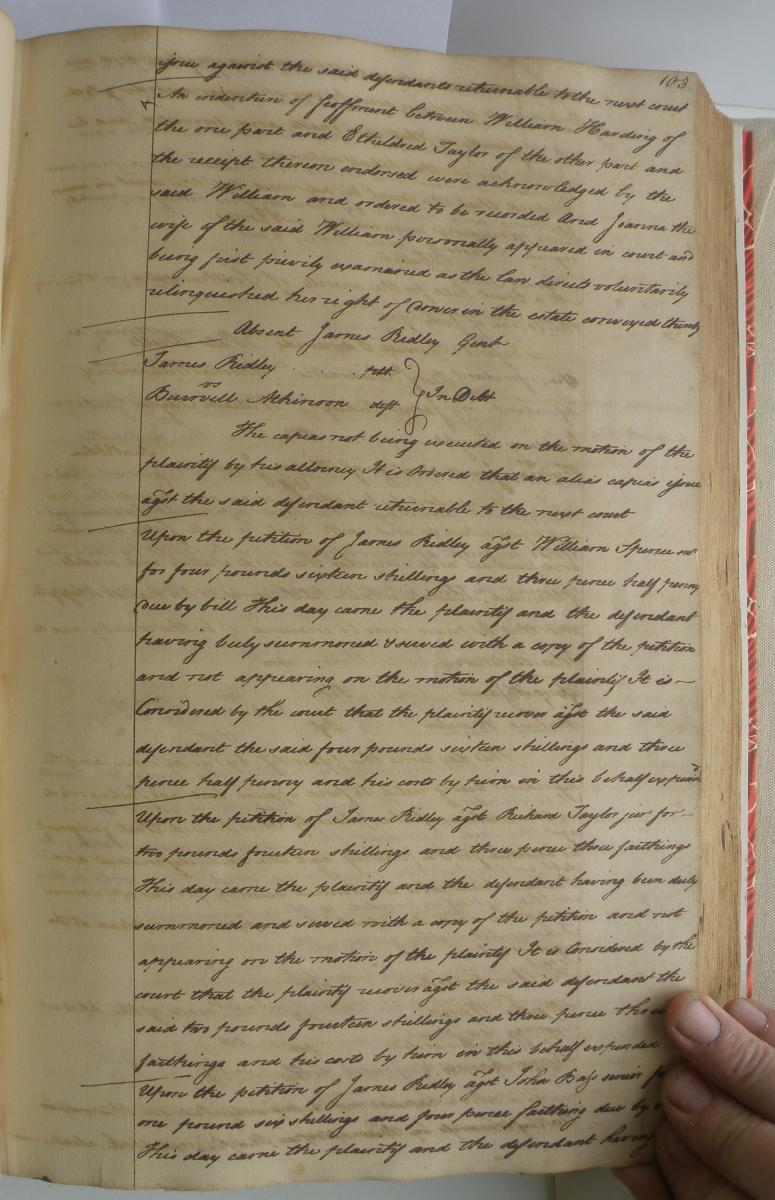 103
issue against the said defendants returnable to the next court
An indenture of feoffment between William Harding of
the one part and Etheldred Taylor of the other part and
the receipt thereon endorsed were acknowledged by the
said William and ordered to be recorded And Joanna the
wife of the said William personally appeared in court and
being first privily examined as the law directs voluntarily
relinquished her right of dower in the estate conveyed thereby
Absent James Ridley Gent
James Ridley . . . plt.
vs
Burwell Atkinson deft } In Debt
The capias not being executed on the motion of the
plaintif by his attorney It is Ordered that an alias capias issue
agst the said defendant returnable to the next court
Upon the petition of James Ridley agst William Spence
for four pounds sixteen shillings and three pence half penny
due by bill This day came the plaintif and the defendant
having been summoned & served with a copy of the petition
and not appearing on the motion of the plaintif It is —
Considered by the court that the plaintif recover agst the said
defendant the said four pounds sixteen shillings and three
pence half penny and his costs by him in this behalf expend
Upon the petition of James Ridley agst Richard Taylor jur for
two pounds fourteen shillings and three pence three farthings
This day came the plaintif and the defendant having been duly
summoned and served with a copy of the petition and not
appearing on the motion of the plaintif It is Considered by the
court that the plaintif recover agst the said defendant the
said two pounds fourteen shillings and three pence three
farthings and his costs by him in this behalf expended
Upon the petition of James Ridley agst John Bass senior
one pound six shillings and four pence farthing due by
This day came the plaintif and the defendant having